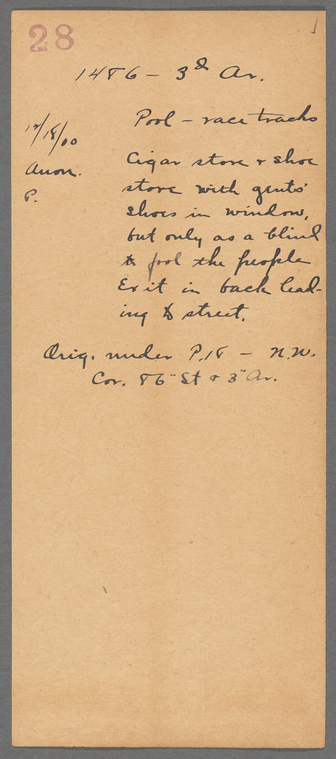 28
1486 - 3d Av.
12/18/00
Anon.
P.
Pool - race tracks
Cigar store & shoe
store with gents'
shoes in window,
but only as a blind
to fool the people
Exit in back lead-
ing to street.
Orig. under P. 18 - N.W.
Cor. 86" St & 3" Av.